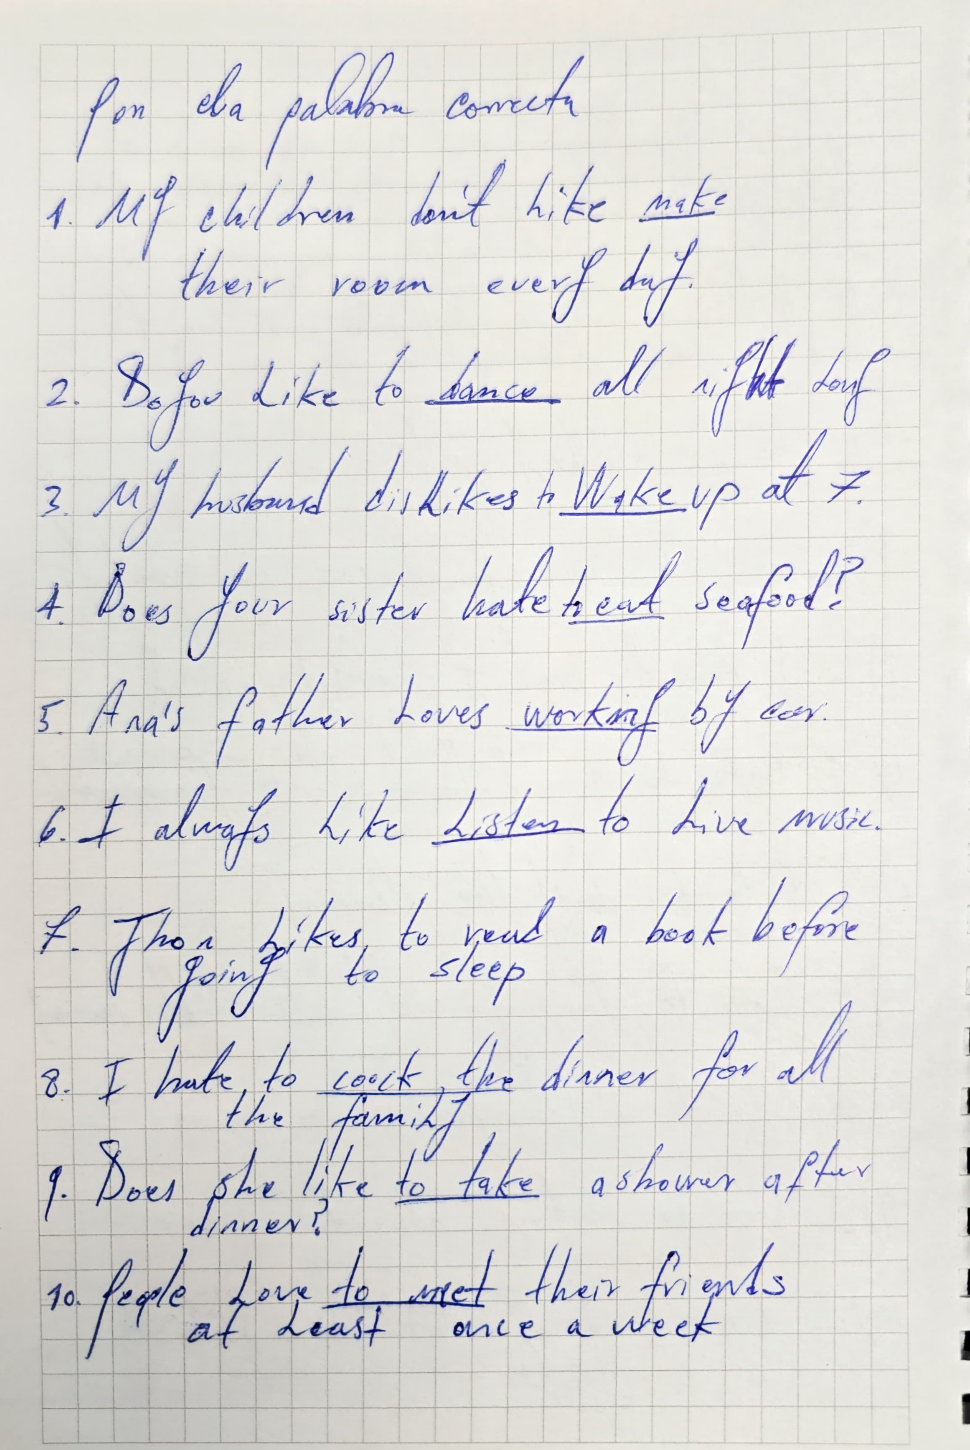 Pon ela palabra correcta
1. My children don't like make
their room every day.
2. Do you like to dance all night long
3. My husband dislikes to wake up at 7.
4. Does your sister hate to eat seafood?
5. Ana's father loves working by car.
6. I always like listen to live music.
7. Jhon likes to read a book before
going to sleep
8. I hate to coock the dinner for all
the family
9. Does she like to take a shower after
dinner?
10. People love to meet their friends
at least once a week